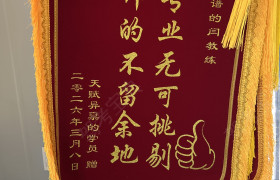 谱的闫教练
专业无可挑剔
的不留余地
天赋异禀的学员 赠
二〇二六年三月八日